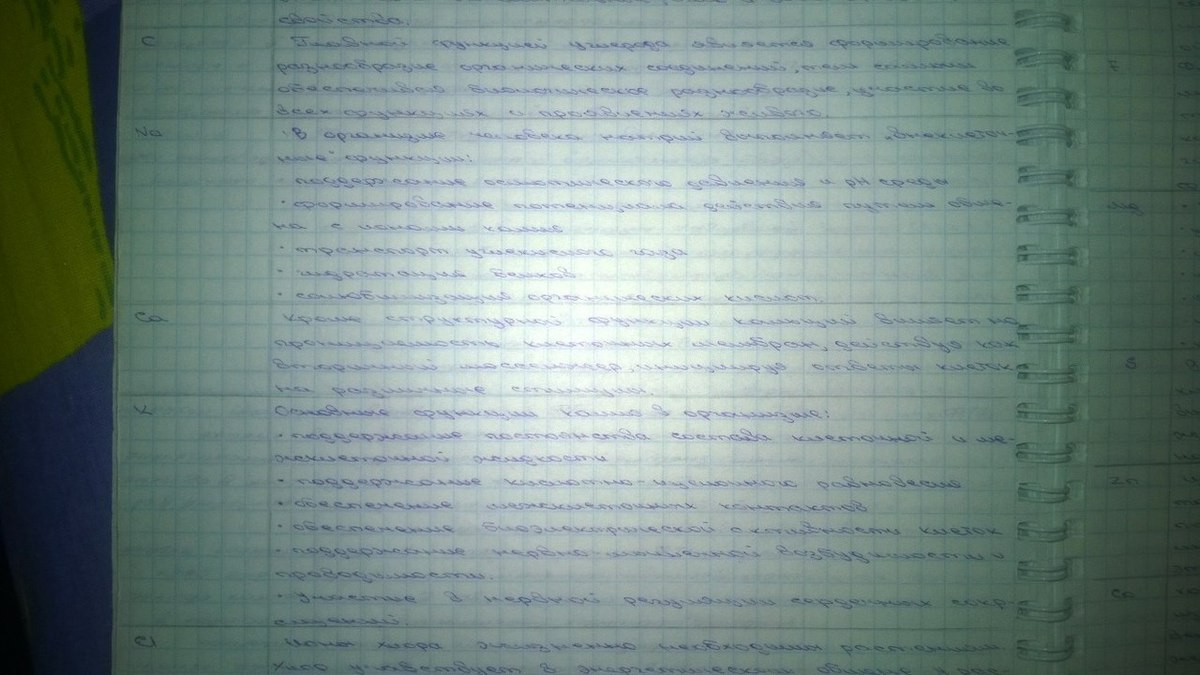 свойства.
C Главной функцией углерода является формирование
разнообразие органических соединений, тем самым
обеспечивая биологическое разнообразие, участие во
всех функциях и проявлениях живого.
Na В организме человека натрий выполняет "внеклеточ-
ные" функции:
· поддержание осмотического давления и pH среды
· формирование потенциала действия путем обме-
на с ионами калия
· транспорт углекислого газа
· гидратация белков
· солюбилизация органических кислот.
Ca Кроме структурной функции кальций влияет на
проницаемость клеточных мембран, действуя как
вторичный мессенджер, инициируя ответы клеток
на различные стимулы.
K Основные функции калия в организме:
· поддержание постоянства состава клеточной и ме-
жклеточной жидкости
· поддержание кислотно-щелочного равновесия
· обеспечение межклеточных контактов
· обеспечение биоэлектрической активности клеток
· поддержание нервно-мышечной возбудимости и
проводимости.
· участие в нервной регуляции сердечных сокр-
ащений.
Cl Ионы хлора жизненно необходимы растениям.
Хлор участвует в энергетическом обмене у рас-
F
Mg
B
Zn